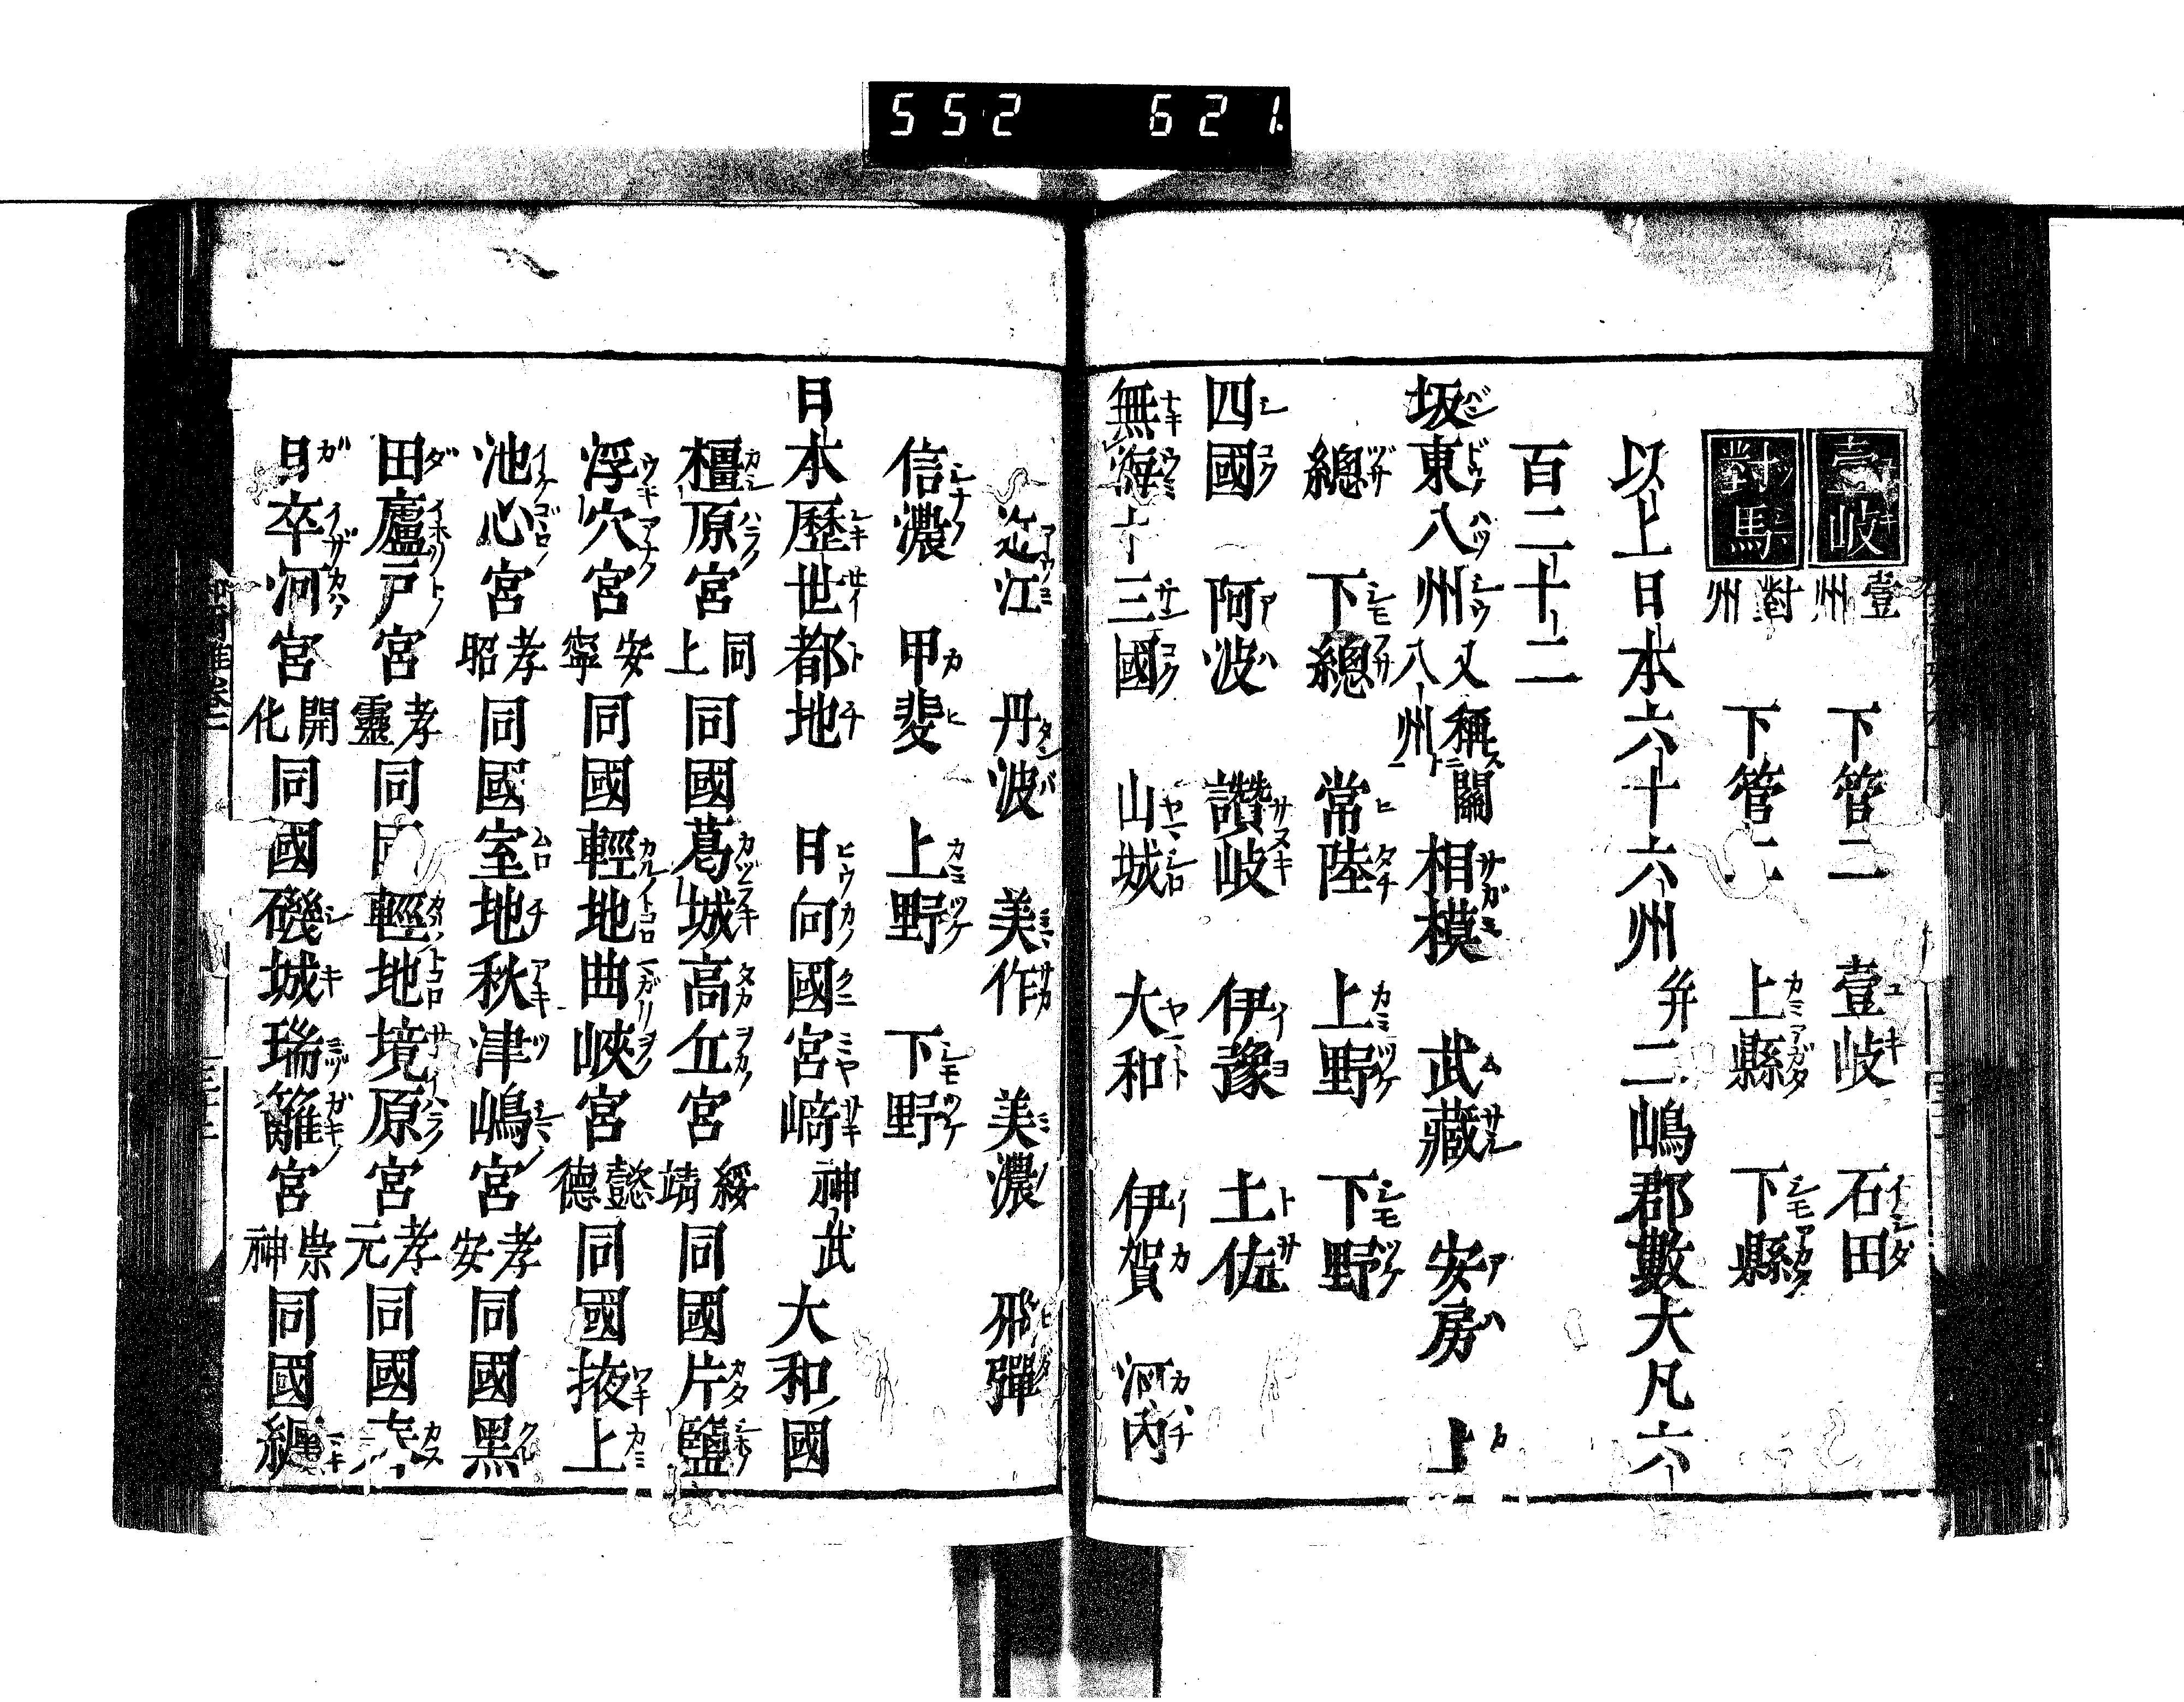 552 621
壹岐 壹州 下管二 壹岐 石田
對馬 對州 下管二 上縣 下縣
以上日本六十六州并二嶋郡數大凡六
百二十二
坂東八州又稱關八州 相模 武藏 安房 上
總 下總 常陸 上野 下野
四國 阿波 讚岐 伊豫 土佐
無海十三國 山城 大和 伊賀 河内
近江 丹波 美作 美濃 飛彈
信濃 甲斐 上野 下野
日本歷世都地 日向國宮﨑神武 大和國
橿原宮同上 同國葛城高丘宮綏靖 同國片鹽
浮穴宮安寧 同國輕地曲峽宮懿德 同國掖上
池心宮孝昭 同國室地秋津嶋宮孝安 同國黑
田廬戸宮孝靈 同國輕地境原宮孝元 同國
日卒河宮開化 同國磯城瑞籬宮崇神 同國纏